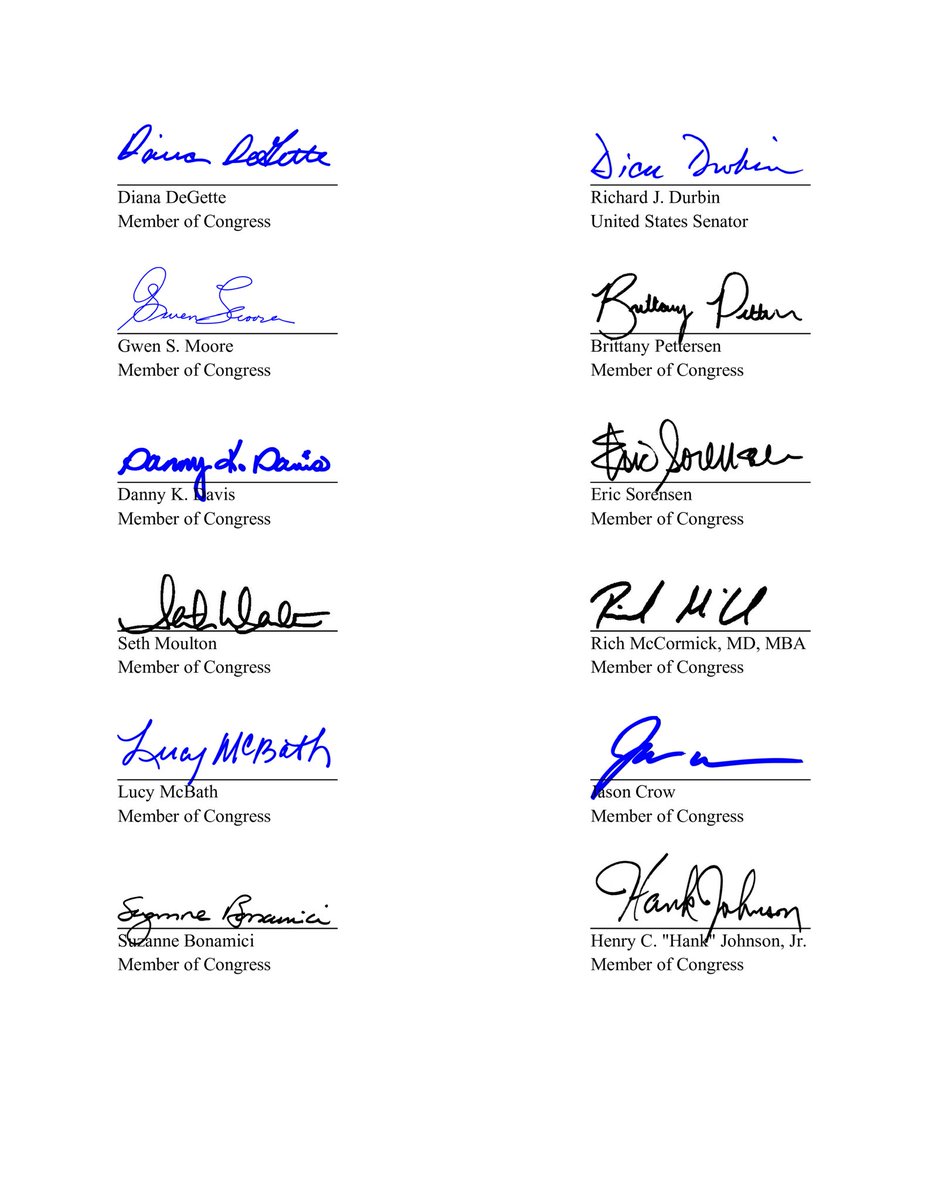 Diana DeGette
Dick Durbin
Diana DeGette
Richard J. Durbin
Member of Congress
United States Senator
Gwen S Moore
Brittany Pettersen
Gwen S. Moore
Brittany Pettersen
Member of Congress
Member of Congress
Danny K. Davis
Eric Sorensen
Danny K. Davis
Eric Sorensen
Member of Congress
Member of Congress
Seth Moulton
Rich McCormick, MD, MBA
Member of Congress
Member of Congress
Lucy McBath
Lucy McBath
Jason Crow
Member of Congress
Member of Congress
Suzanne Bonamici
Hank Johnson
Suzanne Bonamici
Henry C. "Hank" Johnson, Jr.
Member of Congress
Member of Congress